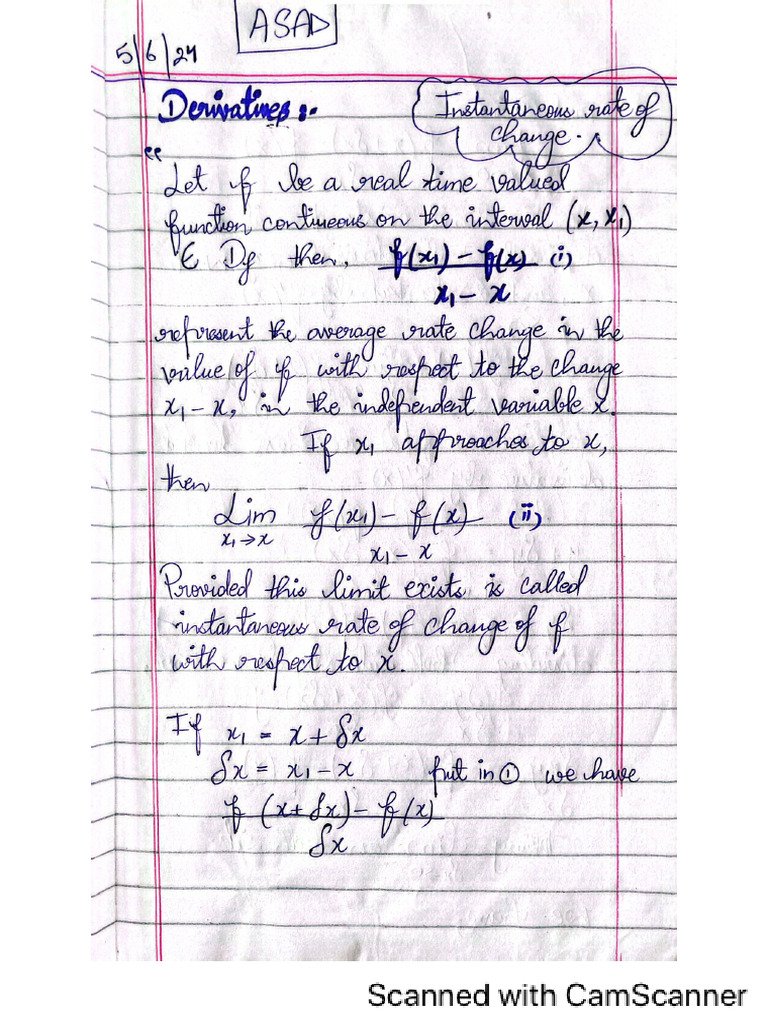 ASAD
5/6/24
Derivatives :-
Instantaneous rate of
change.
“
Let f be a real time valued
function continueous on the interval (x, x₁)
∈ Df then, f(x₁) - f(x) (i)
x₁ - x
represent the average rate change in the
value of f with respect to the change
x₁ - x, in the independent variable x.
If x₁ approaches to x,
then
Lim f(x₁) - f(x) (ii)
x₁→x x₁ - x
Provided this limit exists is called
instantaneous rate of change of f
with respect to x.
If x₁ = x + δx
δx = x₁ - x put in ① we have
f (x + δx) - f(x)
δx
Scanned with CamScanner